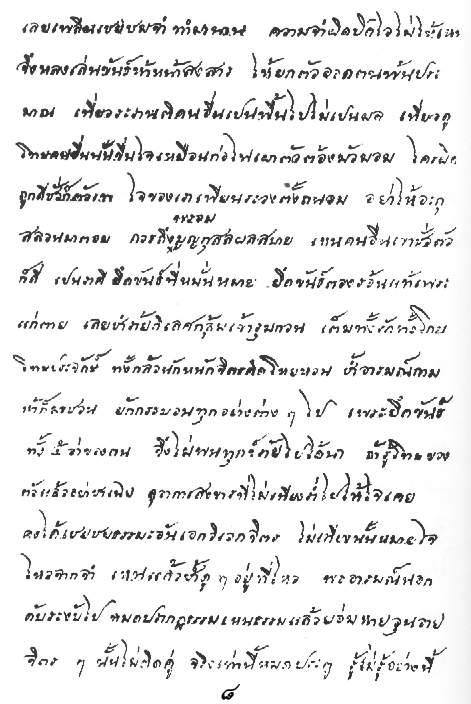 เลยเพลินเชยชมจำทำสำคัญ ความจำผิดปิดไว้ไม่ให้เห็น
จึงหลงเล่นขันธ์ห้าหน้าสงสาร ให้ยกตัวอวดตนพ้นประ
มาณ เที่ยวระรานติคนอื่นเปนพื้นไปไม่เปนผล เที่ยวดู
โทษคนอื่นนั้นขื่นใจเหมือนก่อไฟเผาตัวต้องมัวมอม ใครผิด
ถูกดีชั่วก็ตัวเขา ใจของเราเพียรระวังตั้งถนอม อย่าให้อะกุ
สลวนมาตอม ควรถึงพร้อมบุญกุสลผลสบาย เหนคนอื่นเขาชั่วตัว
ก็ดี เปนราคี ยึดขันธ์ที่มั่นหมาย ยึดขันธ์ต้องร้อนแท้เพราะ
แก่ตาย เลยซ้ำร้ายกิเลศกลุ้มเข้ารุมกวน เต็มทั้งรักทั้งโกรธ
โทษประจักษ์ ทั้งกลัวนักหนักจิตรคิดโหยหวน ซ้ำอารมณ์กาม
ห้าก็มาชวน ยกกระบวนทุกอย่างต่าง ๆ ไป เพราะยึดขันธ์
ทั้ง ๕ ว่าของตน จึงไม่พ้นทุกข์ภัยไปได้นา ถ้ารู้โทษของ
ตัวแล้วอย่าชาเฉย ดูอาการสังขารที่ไม่เที่ยงร่ำไปให้ใจเคย
คงได้เชยชมธรรมะอันเอกวิเวกจิตร ไม่เที่ยงนั้นหมายใจ
ไหวจากจำ เหนแล้วซ้ำดู ๆ อยู่ที่ไหว พออารมณ์นอก
ดับระงับไป หมดปรากฏธรรม เหนธรรมแล้วย่อมหายวุ่นวาย
จิตร ๆ นั้นไม่ติดคู่ จริงเท่านี้หมดประตู รู้ไม่รู้อย่างนี้
๘